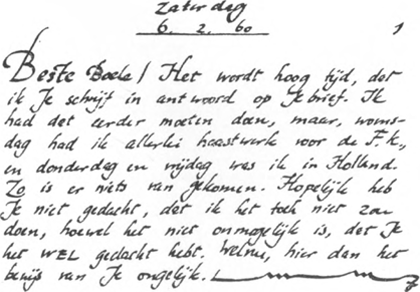 zaterdag
6. 2. 60 1
Beste Boele! Het wordt hoog tijd, dat
ik Je schrijf in antwoord op Je brief. Ik
had dat eerder moeten doen, maar, woens-
dag had ik allerlei haastwerk voor de F.K.,
en donderdag en vrijdag was ik in Holland.
Zo is er niets van gekomen. Hopelijk heb
Je niet gedacht, dat ik het toch niet zou
doen, hoewel het niet onmogelijk is, dat Je
het WEL gedacht hebt. Welnu, hier dan het
bewijs van Je ongelijk.